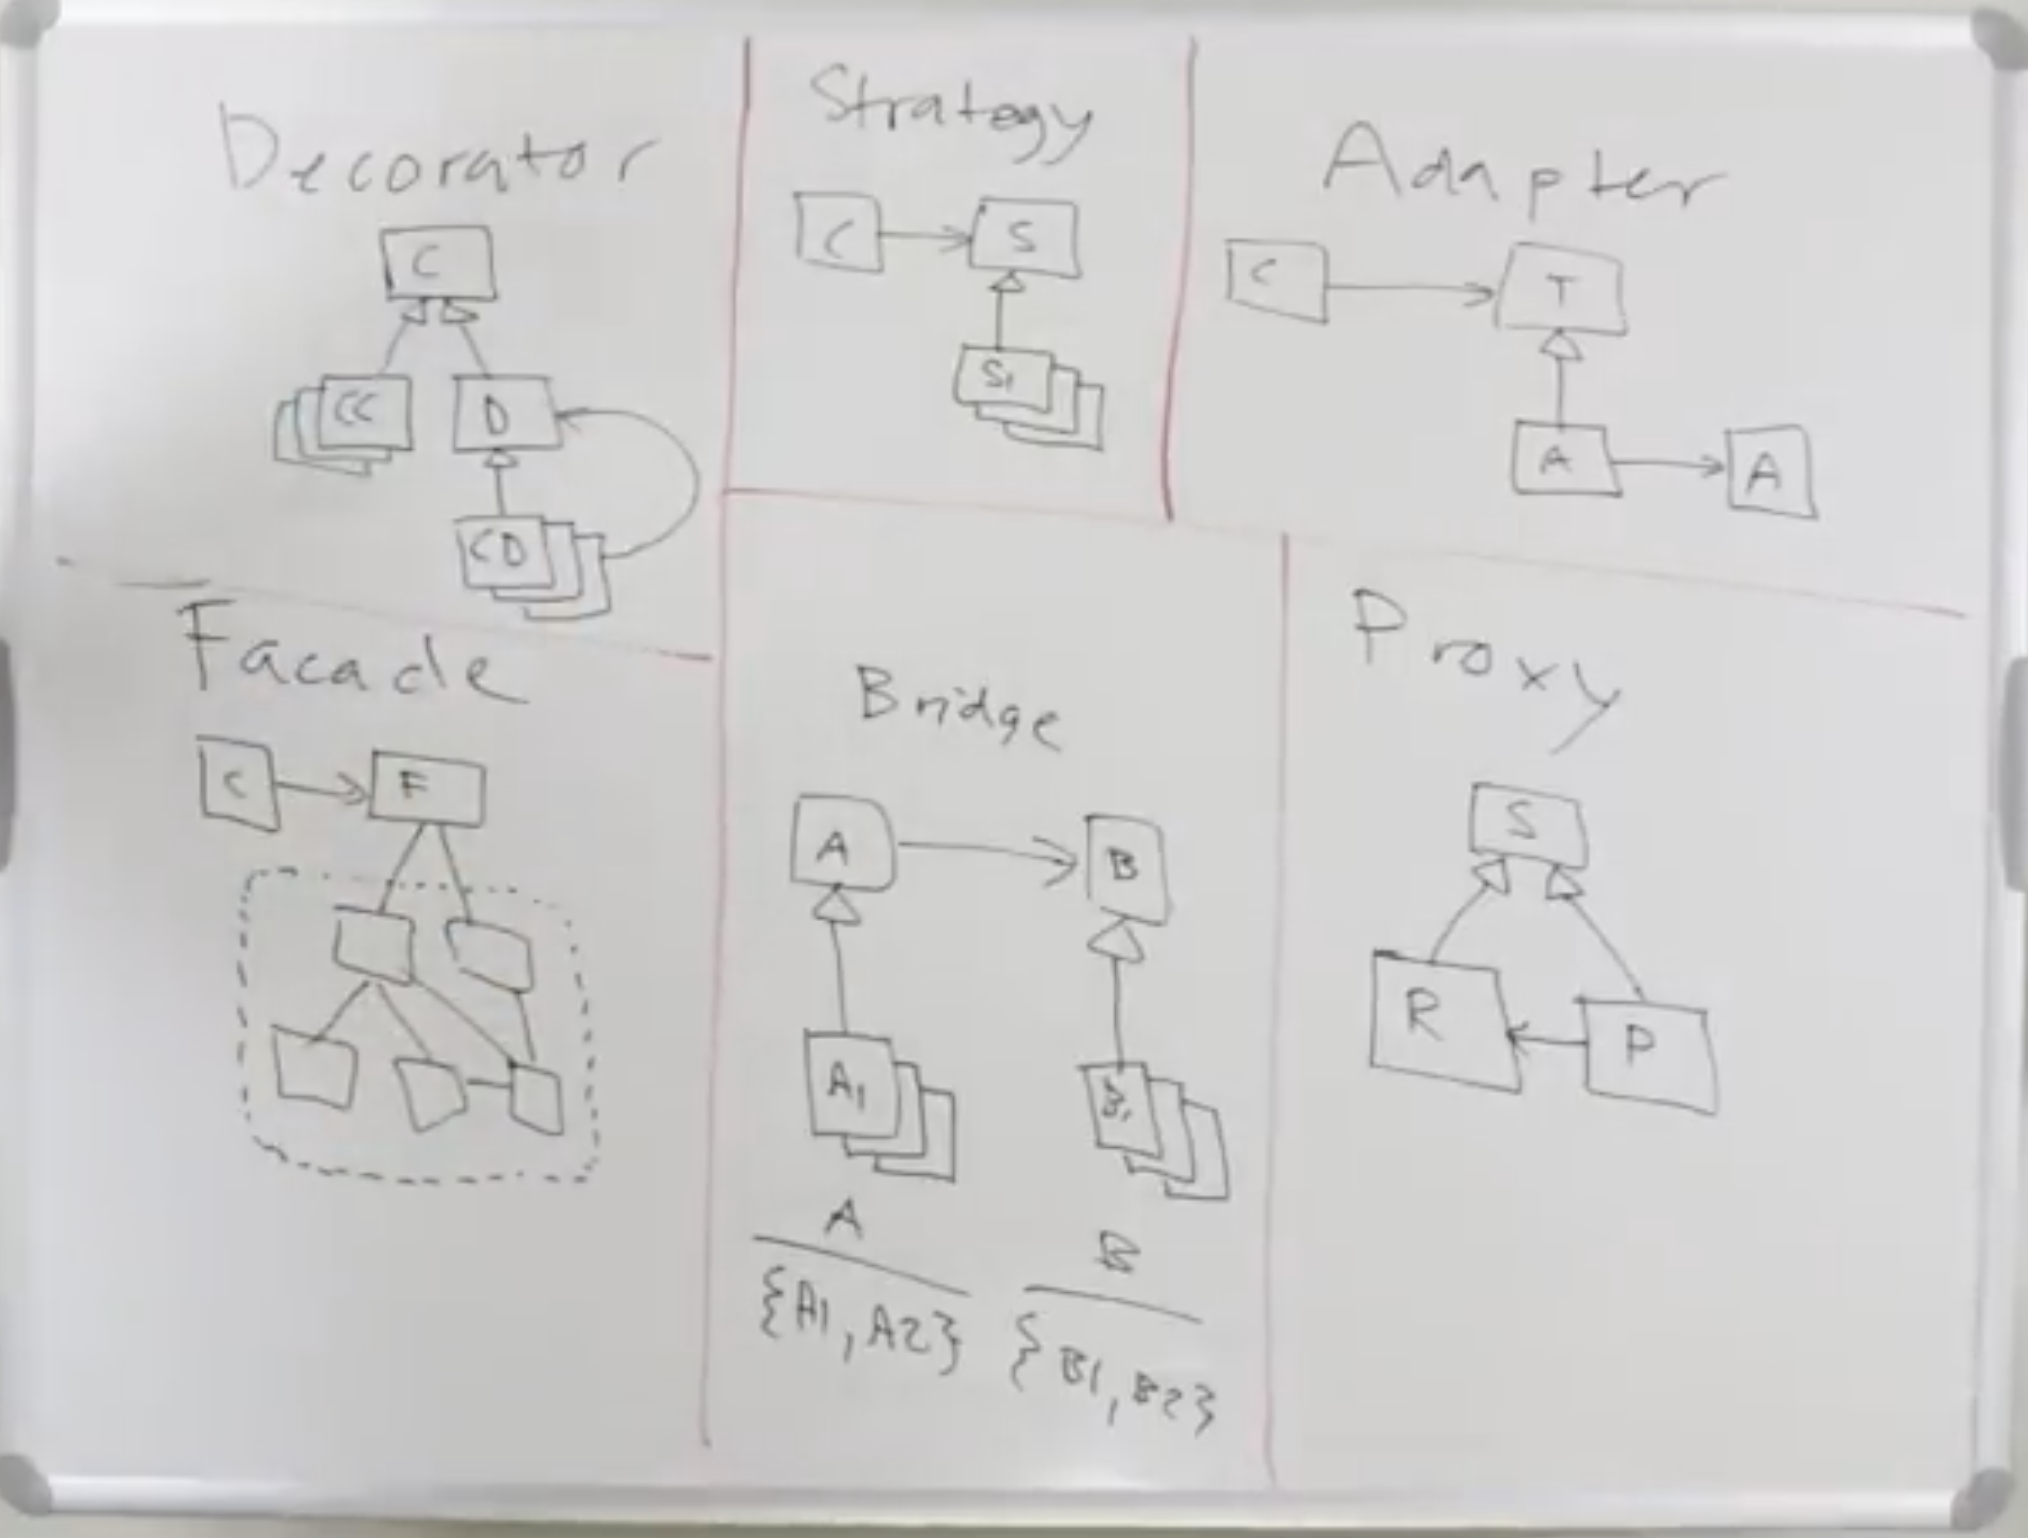 Decorator
C
CC
D
CD
Strategy
C
S
S1
Adapter
C
T
A
A
Facade
C
F
Bridge
A
B
A1
B1
A
{A1, A2}
B
{B1, B2}
Proxy
S
R
P